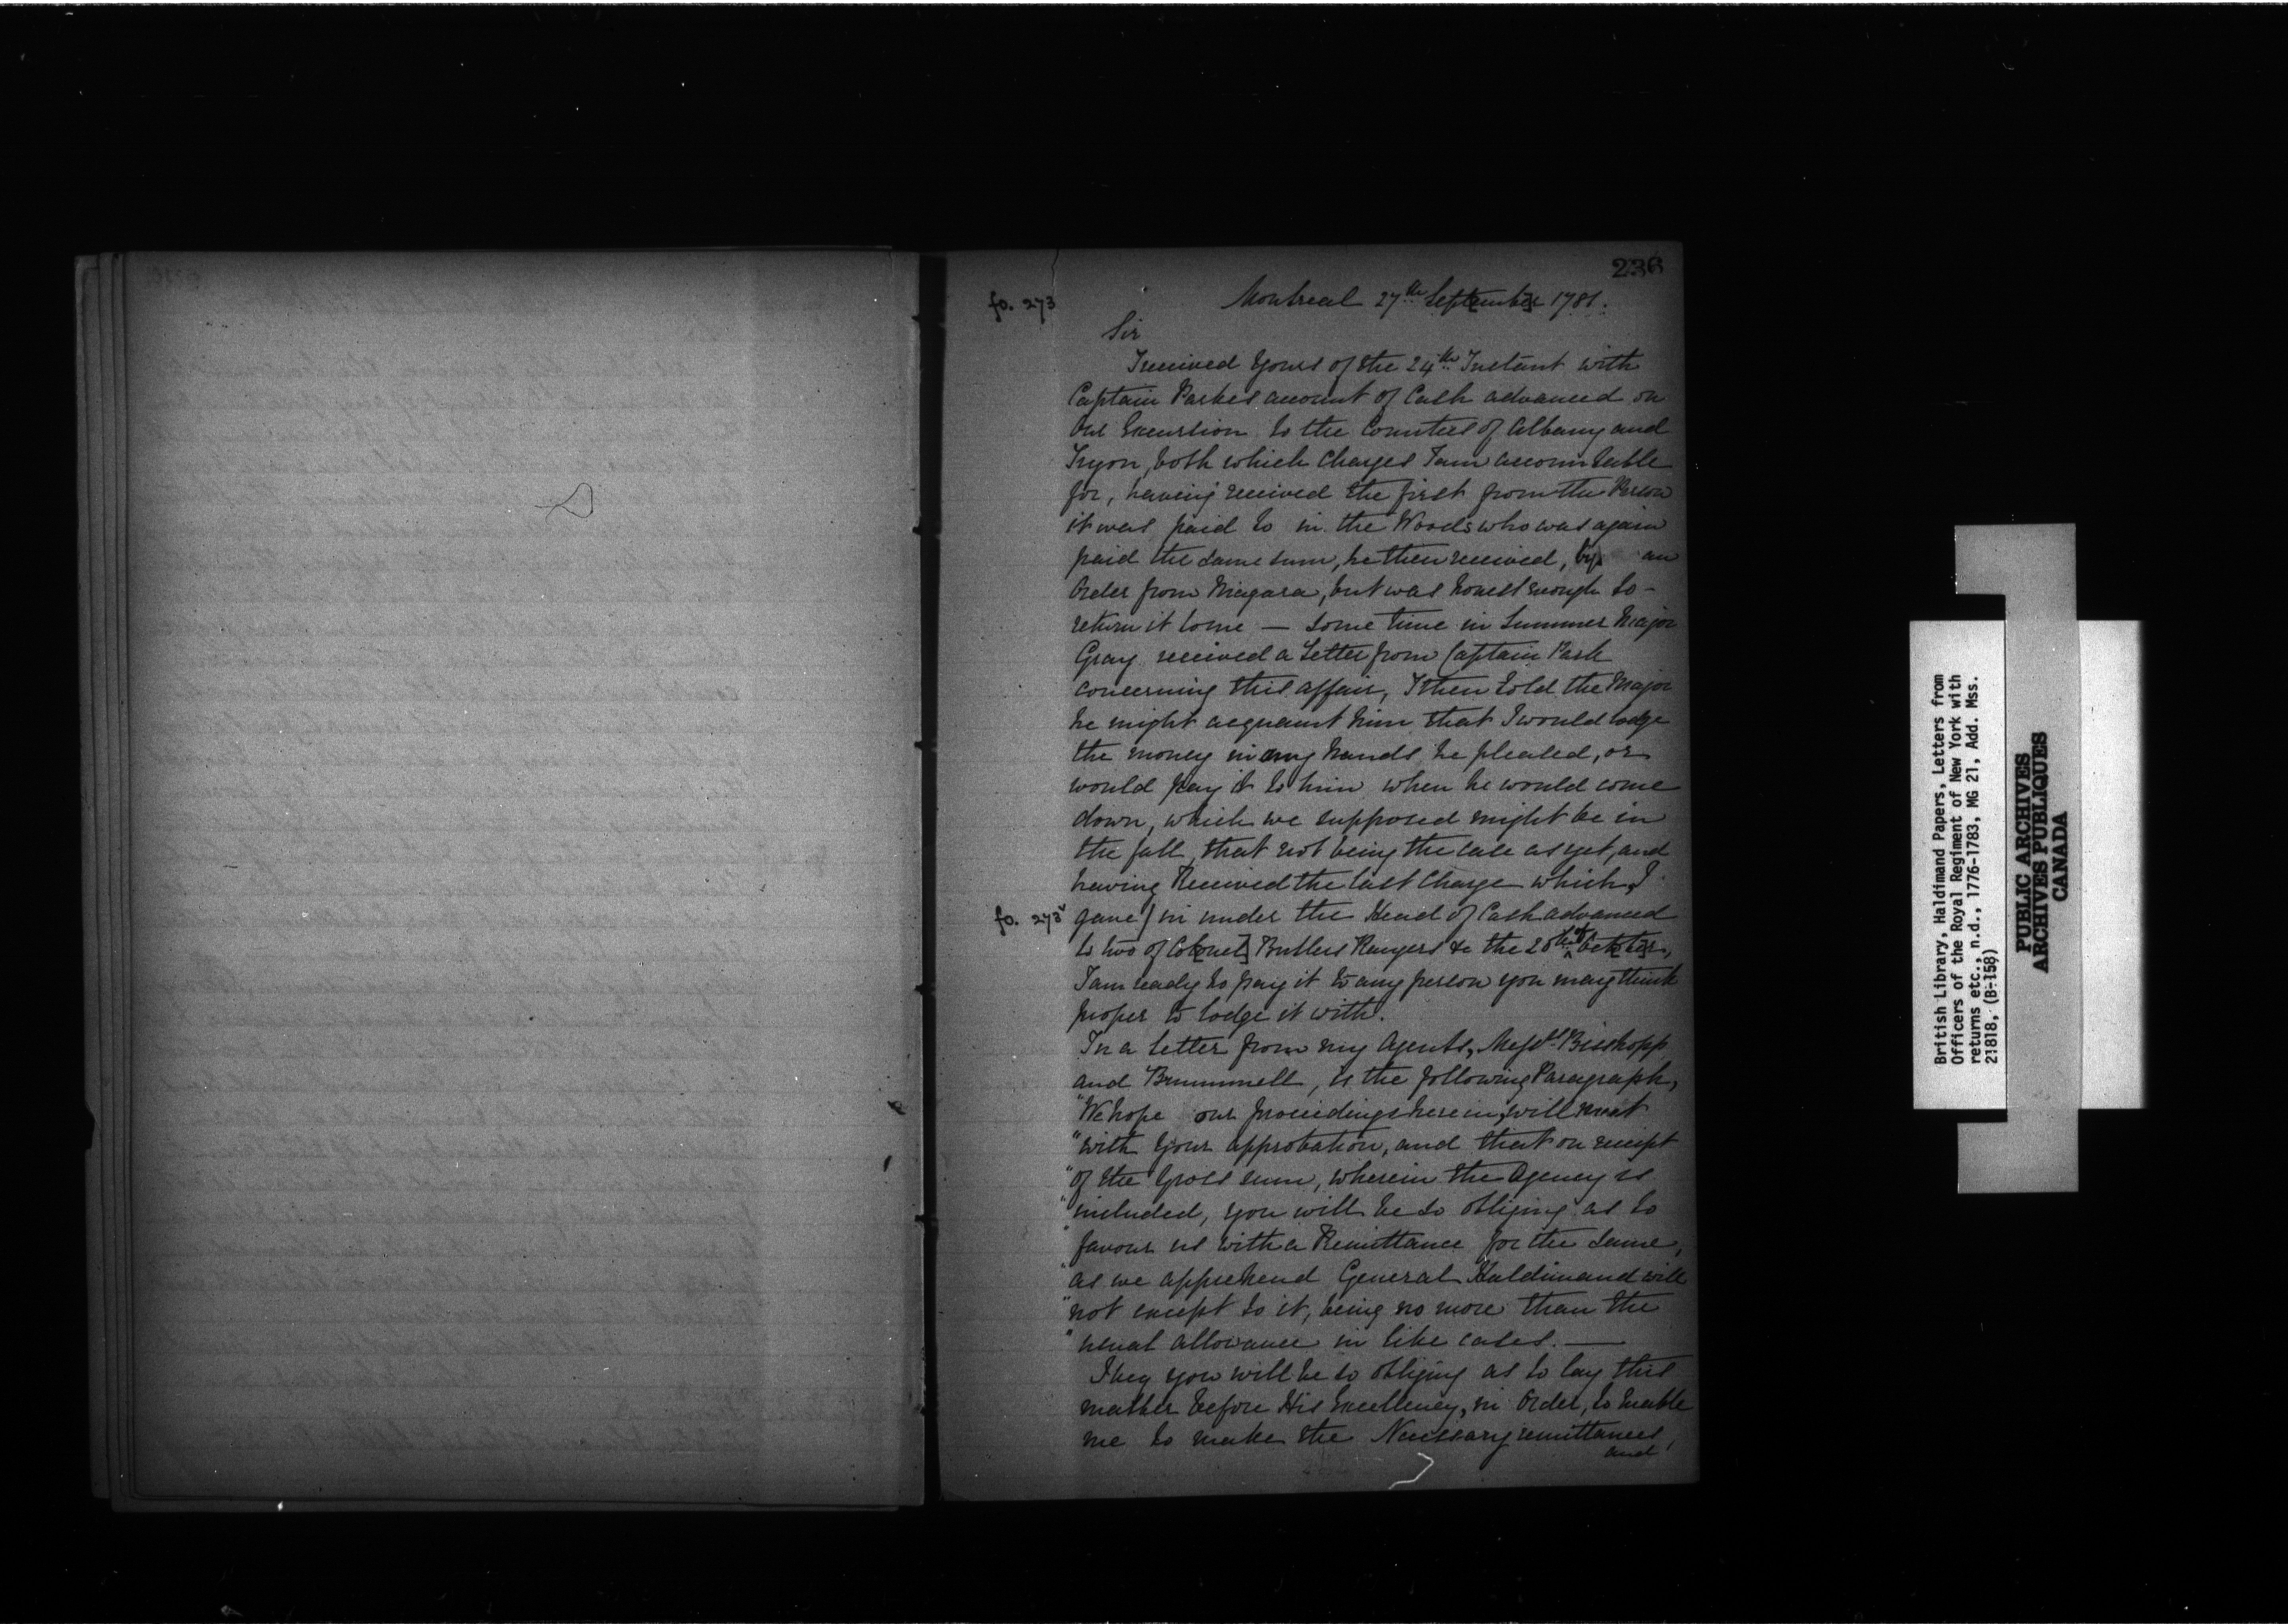 236
fo. 273
Montreal 27th Sept[embe]r 1781.
Sir
I received Yours of the 24th Instant with
Captain Parkes account of Cash advanced on
our Excursion to the Counties of Albany and
Tryon, both which Charges I am accountable
for, having received the first from the Person
it was paid to in the Woods who was again
paid the same sum, he then received, by an
Order from Niagara, but was honest enough to -
return it to me — some time in Summer Major
Gray received a Letter from Captain Park
concerning this affair, I then told the Major
he might acquaint him that I would lodge
the money in any hands he pleased, or
would pay it to him when he would come
down, which we supposed might be in
the fall, that not being the case as yet, and
having Received the last Charge which I
fo. 273v gave / in under the Head of Cash advanced
to two of Col[onel] Butlers Rangers &c the 20th of Oct[obe]r,
I am ready to pay it to any person you may think
proper to lodge it with.
In a letter from my Agents, Messrs Bisshopp
and Brummell, is the following Paragraph,
"We hope our proceedings herein, will meet
"with Your approbation, and that on receipt
"of the Gross sum, wherein the Agency is
"included, you will be so obliging as to
"favour us with a Remittance for the same,
"as we apprehend General Haldimand will
"not except to it, being no more than the
"usual allowance in like cases. —
I beg you will be so obliging as to lay this
matter before His Excellency, in Order, to Enable
me to make the Necessary remittances,
and
British Library, Haldimand Papers, Letters from
Officers of the Royal Regiment of New York with
returns etc., n.d., 1776-1783, MG 21, Add. Mss.
21818, (B-158)
PUBLIC ARCHIVES
ARCHIVES PUBLIQUES
CANADA